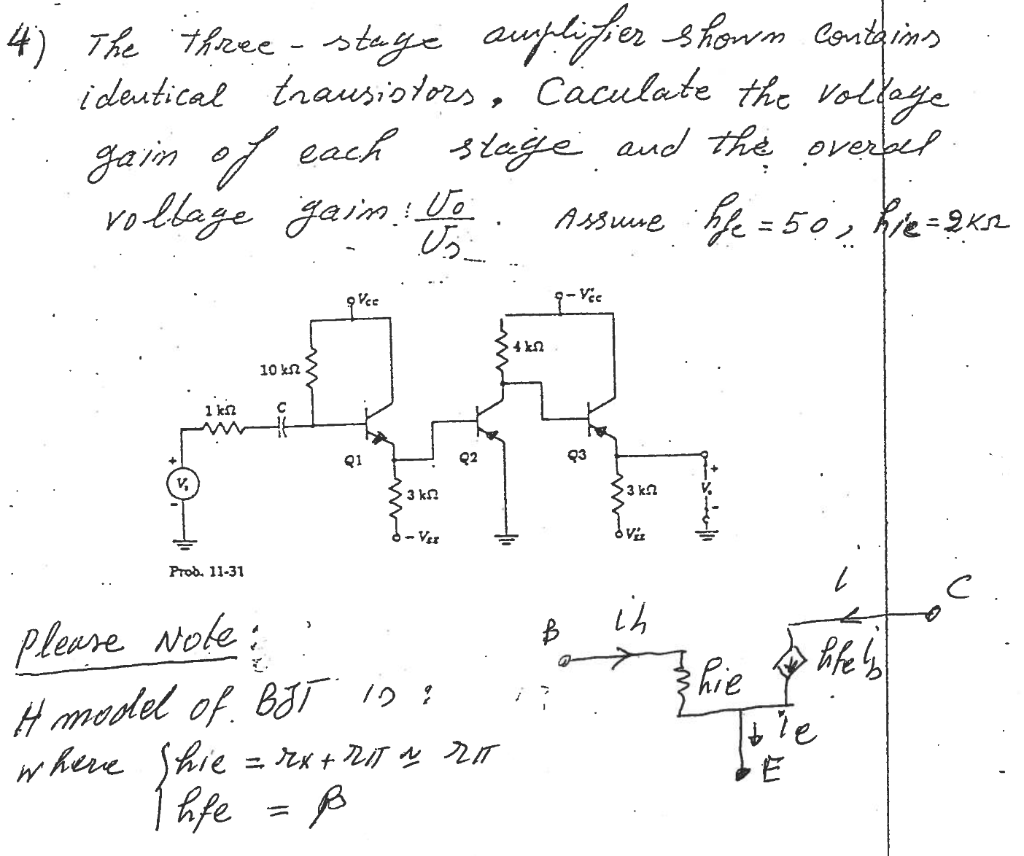 4) The three-stage amplifier shown contains
identical transistors. Caculate the voltage
gain of each stage and the overal
voltage gain: Vo/Vs . Assume hfe = 50, hie = 2KΩ
Vcc
-V'cc
4 kΩ
10 kΩ
1 kΩ C
Q1 Q2 Q3
+
Vs
-
3 kΩ 3 kΩ
+
Vo
-
-VEE V'EE
Prob. 11-31
Please Note:
H model of BJT is:
where { hie = rx + rπ ≈ rπ
hfe = β
B ib i C
hie hfe ib
ie
E